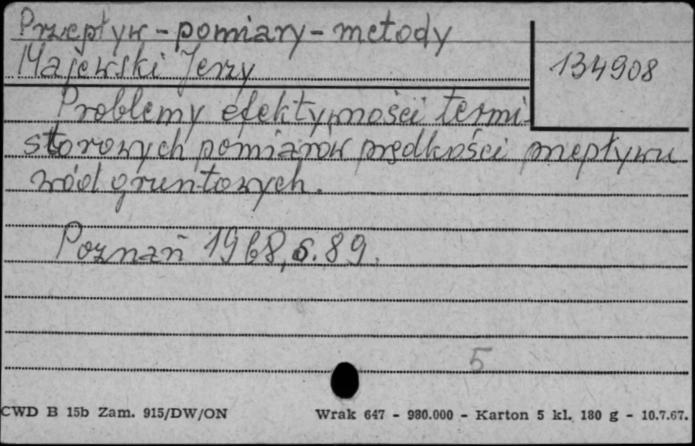 Przepływ - pomiary - metody
Majewski Jerzy
134908
Problemy efektywności termi-
storowych pomiarów prędkości przepływu
wód gruntowych.
Poznań 1968, s. 89.
5
CWD B 15b Zam. 915/DW/ON Wrak 647 - 980.000 - Karton 5 kl. 180 g - 10.7.67.